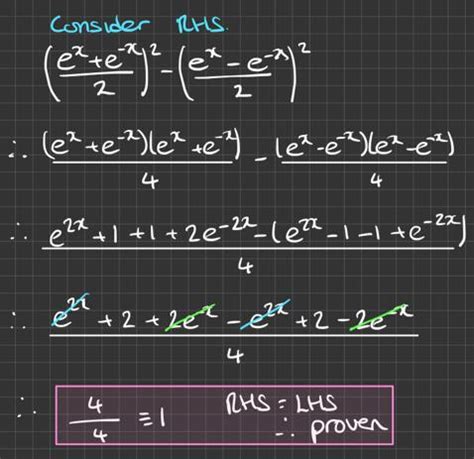 Consider RHS.
(eˣ + e⁻ˣ / 2)² - (eˣ - e⁻ˣ / 2)²
∴ (eˣ + e⁻ˣ)(eˣ + e⁻ˣ) / 4 - (eˣ - e⁻ˣ)(eˣ - e⁻ˣ) / 4
∴ e²ˣ + 1 + 1 + 2e⁻²ˣ - (e²ˣ - 1 - 1 + e⁻²ˣ) / 4
∴ e²ˣ + 2 + 2eˣ - e²ˣ + 2 - 2e⁻ˣ / 4
∴ 4 / 4 ≡ 1 RHS = LHS
∴ proven